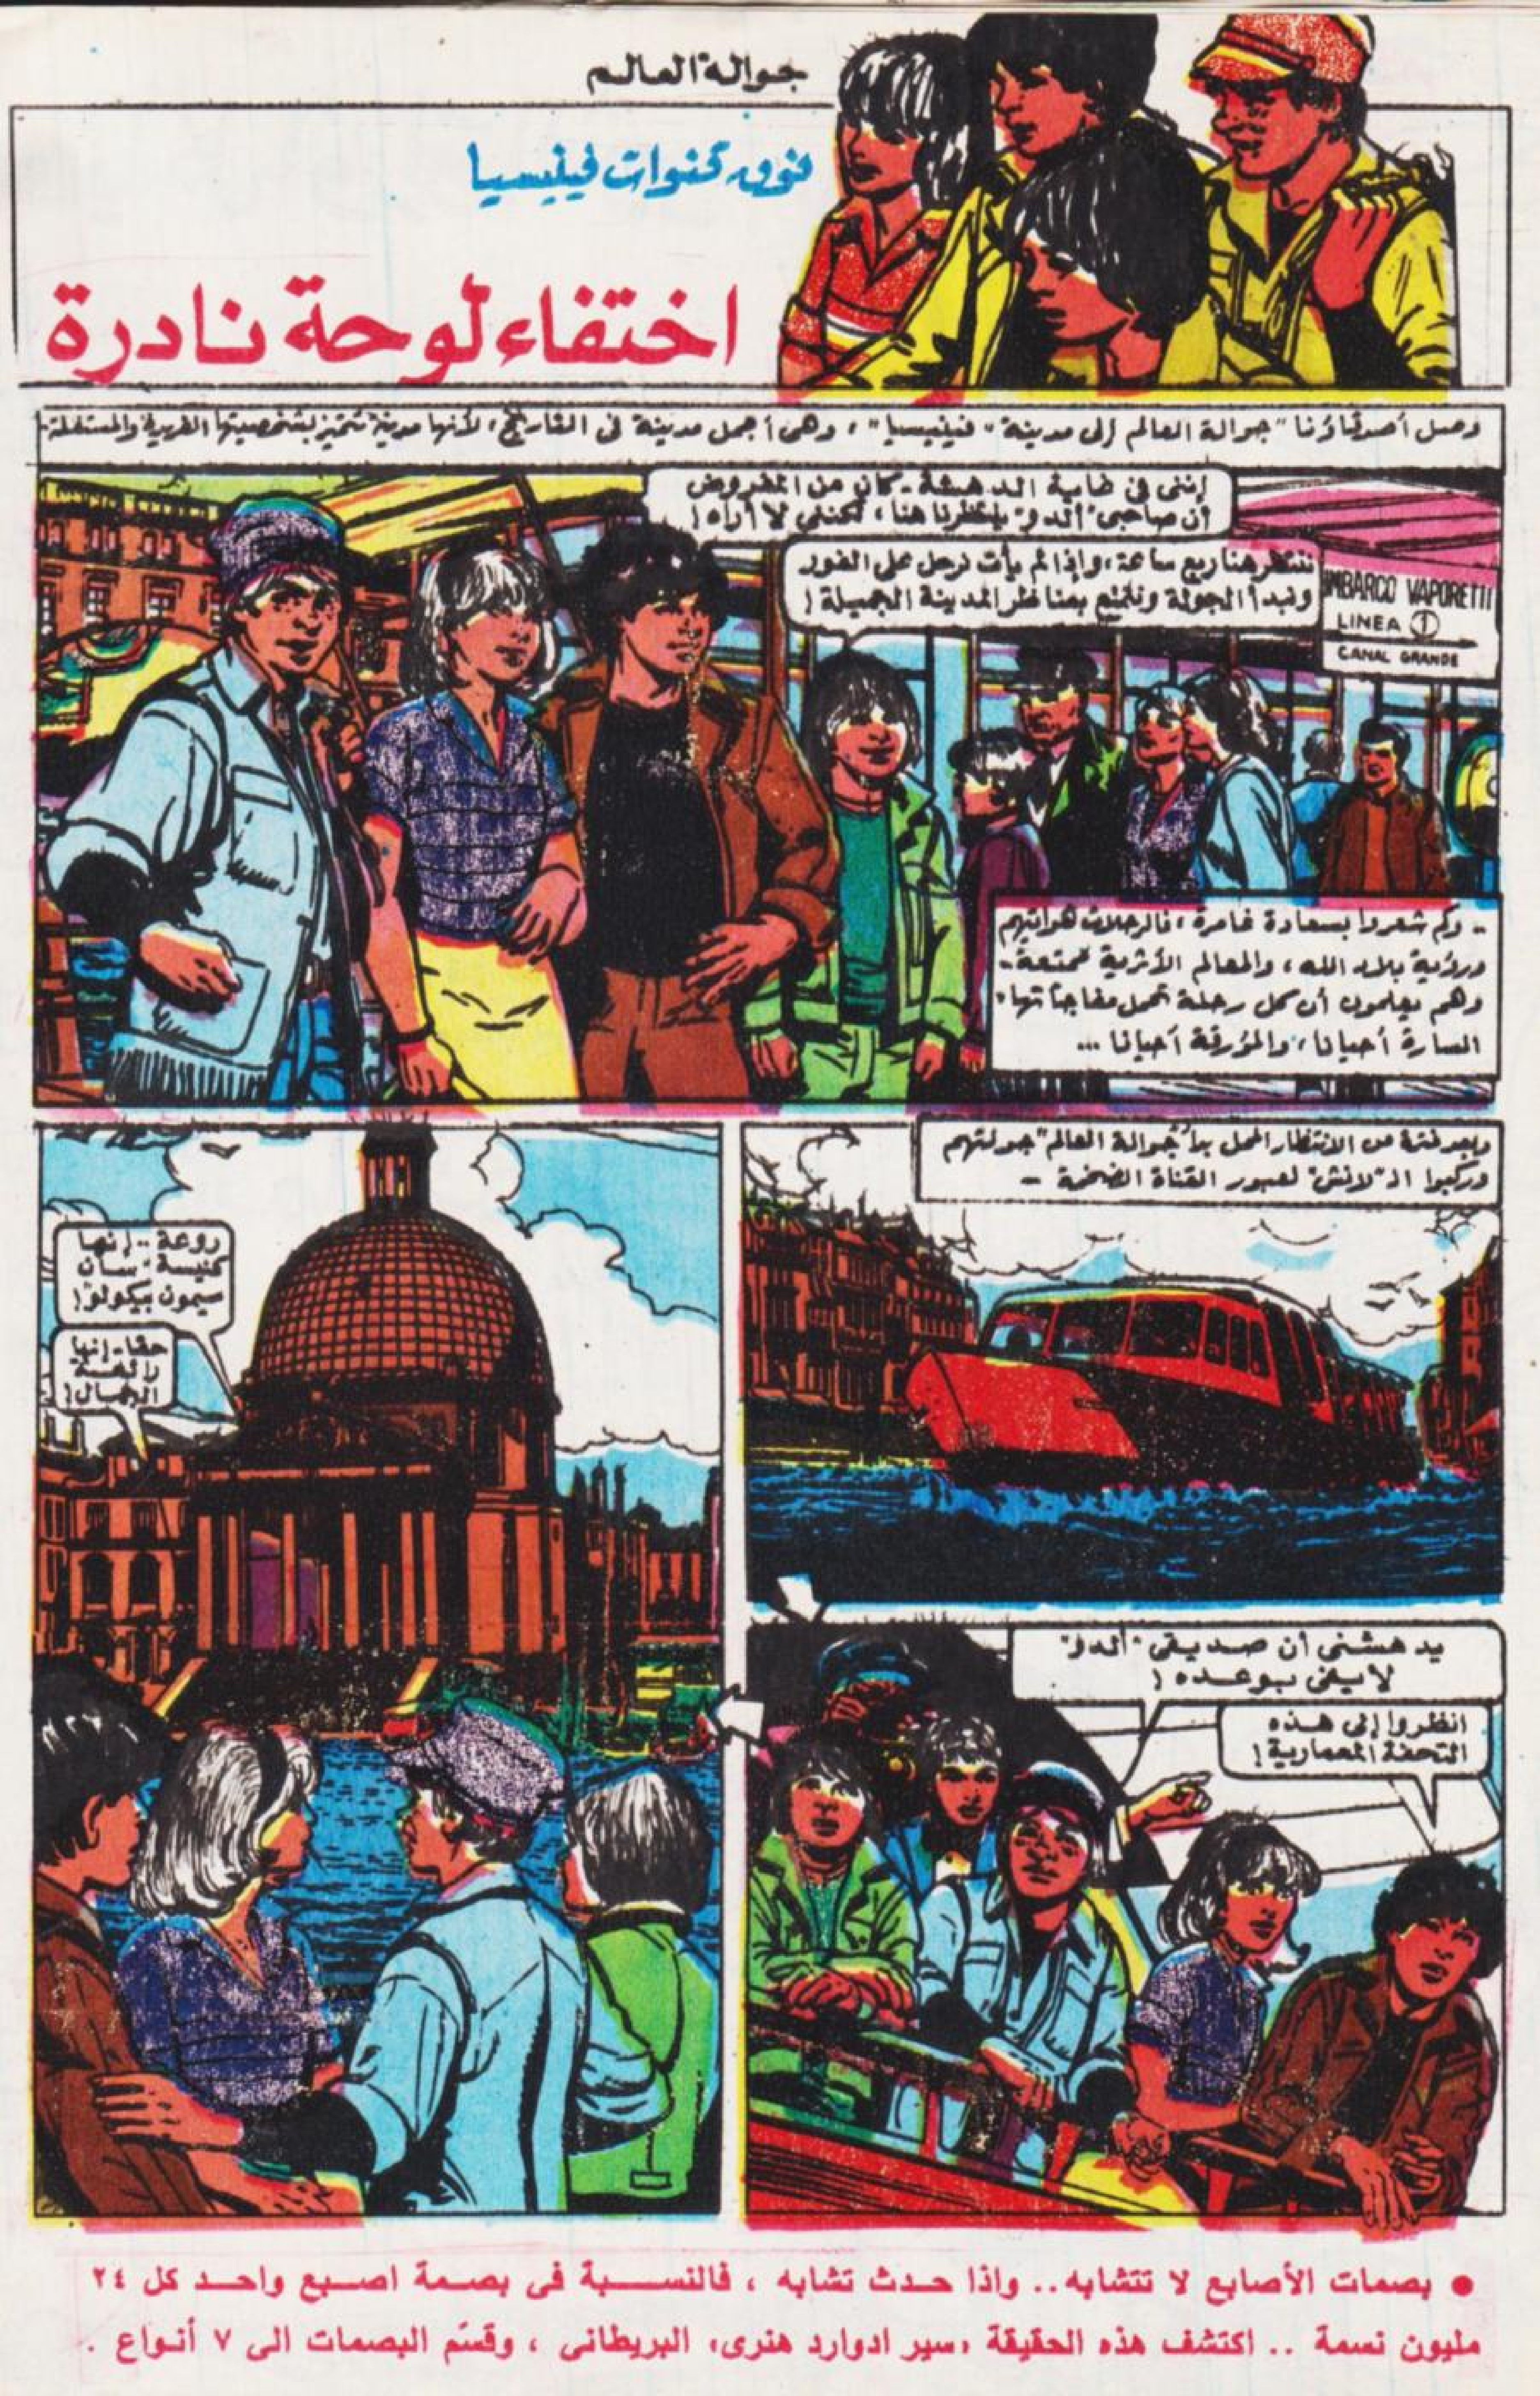 جوالة العالم
فوق قنوات فينيسيا
اختفاء لوحة نادرة
وصل أصدقاؤنا "جوالة العالم إلى مدينة "فينيسيا"، وهى أجمل مدينة فى التاريخ، لأنها مدينة تتميز بشخصيتها الفريدة والمستقلة-
إننى فى غاية الدهشة - كان من المفروض
أن صاحبى "ألدو" ينتظرنا هنا، لكننى لا أراه!
ننتظر هنا ربع ساعة، وإذا لم يأت نرحل على الفور
ونبدأ الجولة ونتمتع بمناظر المدينة الجميلة!
IMBARCO VAPORETTI
LINEA 1
CANAL GRANDE
.. وكم شعروا بسعادة غامرة، فالرحلات هوايتهم
ورؤية بلاد الله، والمعالم الأثرية ممتعة -
وهم يعلمون أن كل رحلة تحمل مفاجآتها،
السارة أحيانا، والمؤرقة أحيانا ...
وبعد فترة من الانتظار الممل بدأ "جوالة العالم" جولتهم
وركبوا الـ"لانش" لعبور القناة الضخمة -
يدهشنى أن صديقى "ألدو"
لا يفى بوعده!
انظروا إلى هذه
التحفة المعمارية!
روعة .. إنها
كنيسة "سان
سيمون بيكولو"!
حقا - إنها
رائعة
الجمال!
● بصمات الأصابع لا تتشابه .. واذا حدث تشابه ، فالنسبة فى بصمة اصبع واحد كل ٢٤
مليون نسمة .. اكتشف هذه الحقيقة «سير ادوارد هنرى» البريطانى ، وقسّم البصمات الى ٧ أنواع .